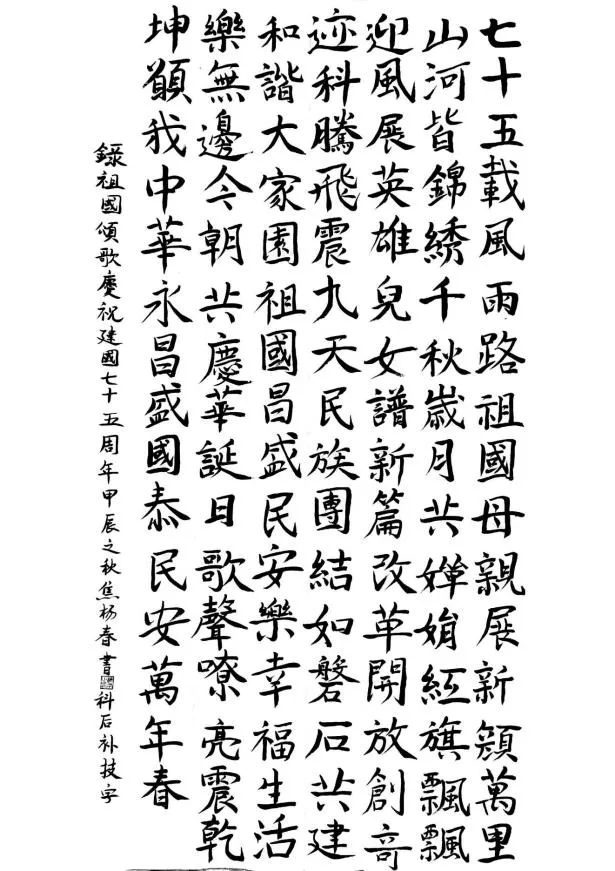 七十五載風雨路祖國母親展新顔萬里
山河皆錦綉千秋歲月共嬋娟紅旗飄飄
迎風展英雄兒女譜新篇改革開放創奇
迹科騰飛震九天民族團結如磐石共建
和諧大家園祖國昌盛民安樂幸福生活
樂無邊今朝共慶華誕日歌聲嘹亮震乾
坤願我中華永昌盛國泰民安萬年春
錄祖國頌歌慶祝建國七十五周年甲辰之秋焦杨春書科后补技字